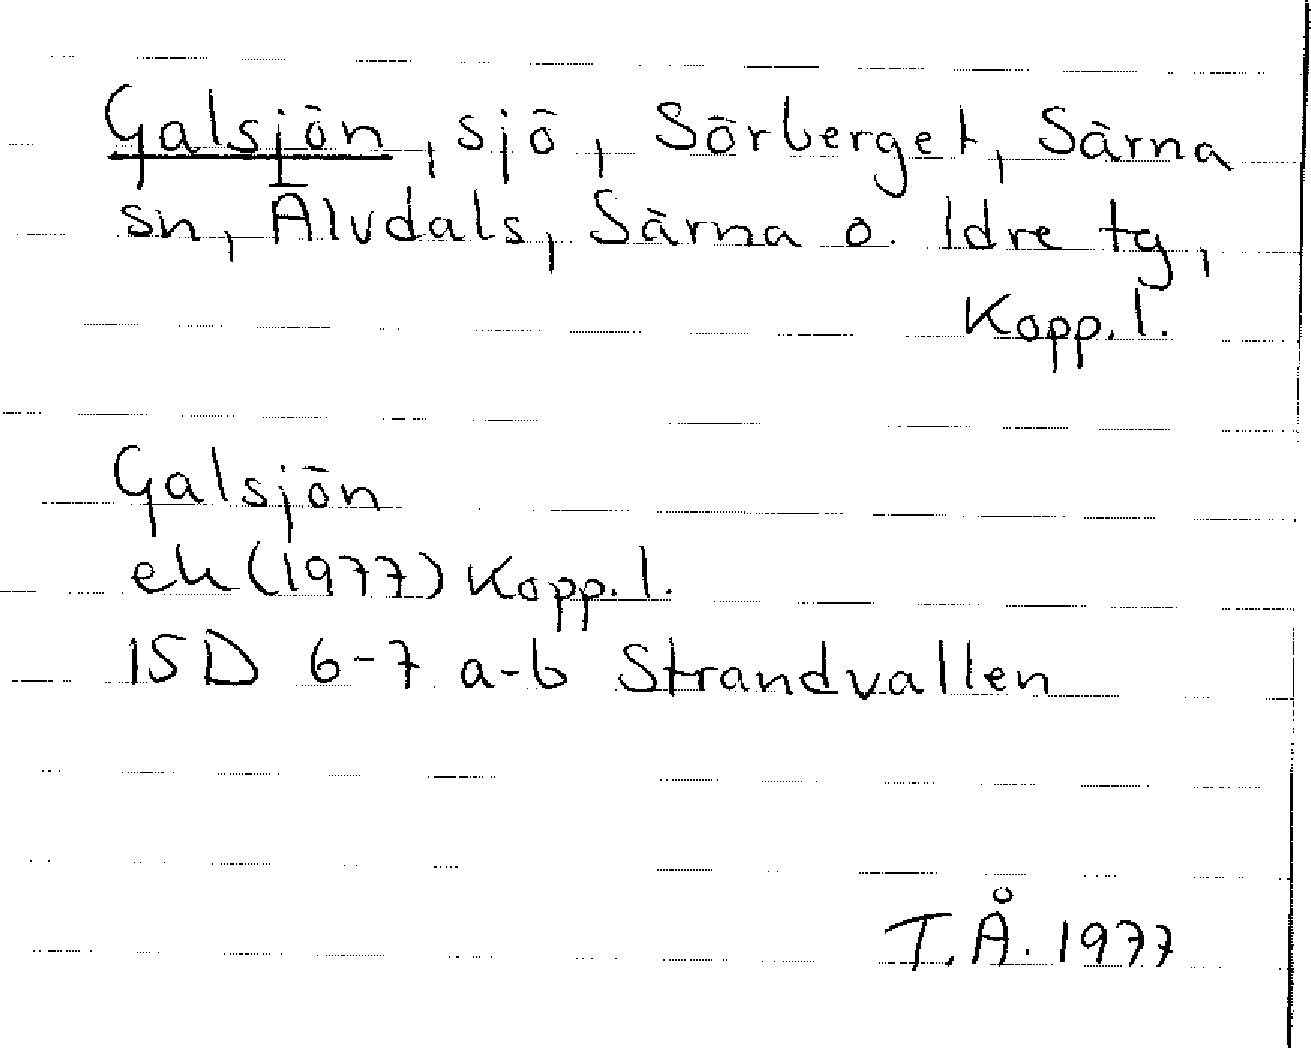 Galsjön, sjö, Sörberget, Särna
sn, Älvdals, Särna o. Idre tg,
Kopp. l.
Galsjön
ek (1977) Kopp. l.
15D 6-7 a-b Strandvallen
T.Å. 1977